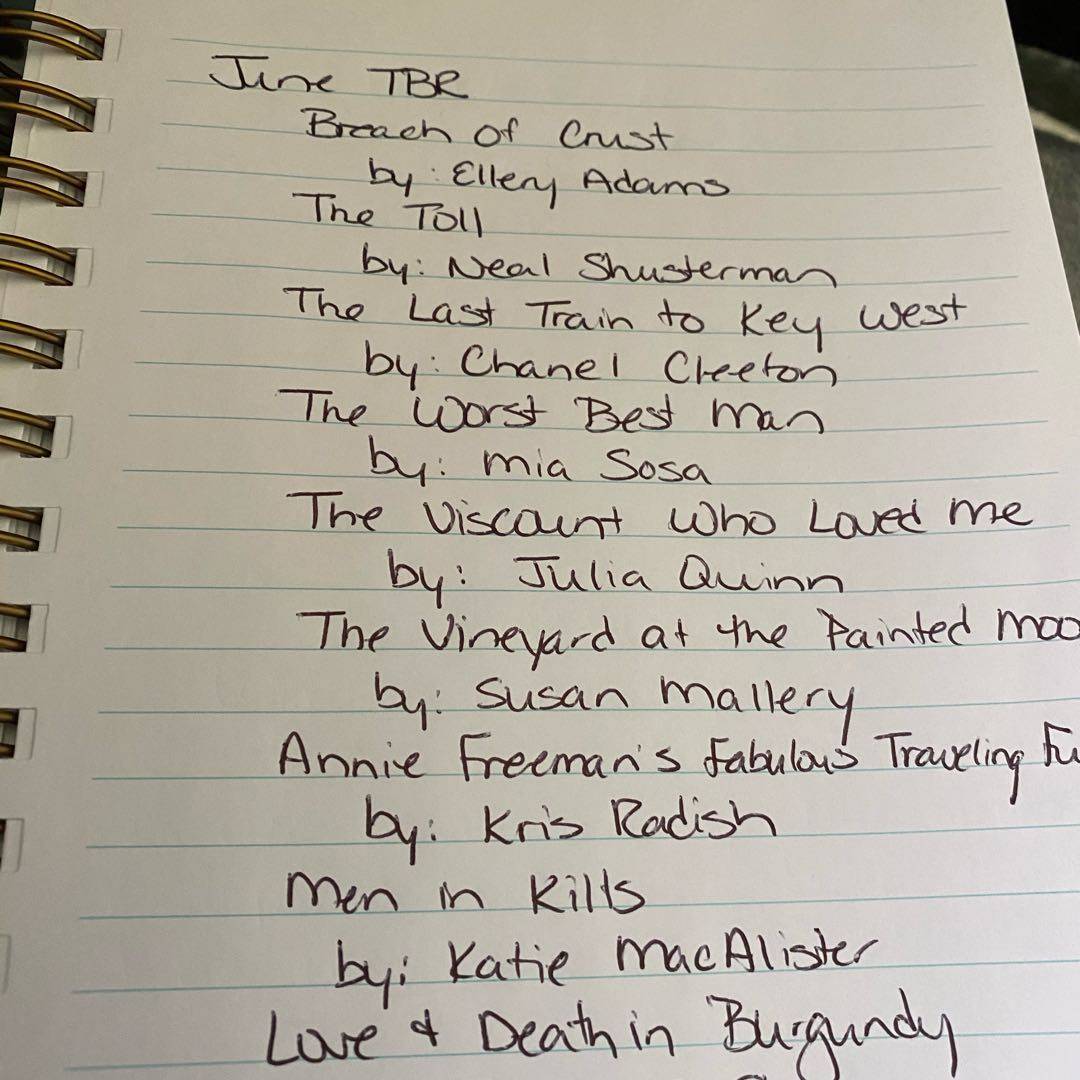 June TBR
Breach of Crust
by: Ellery Adams
The Toll
by: Neal Shusterman
The Last Train to Key West
by: Chanel Cleeton
The Worst Best Man
by: Mia Sosa
The Viscount Who Loved Me
by: Julia Quinn
The Vineyard at the Painted Moo
by: Susan Mallery
Annie Freeman's Fabulous Traveling Fu
by: Kris Radish
Men in Kilts
by: Katie MacAlister
Love & Death in Burgundy